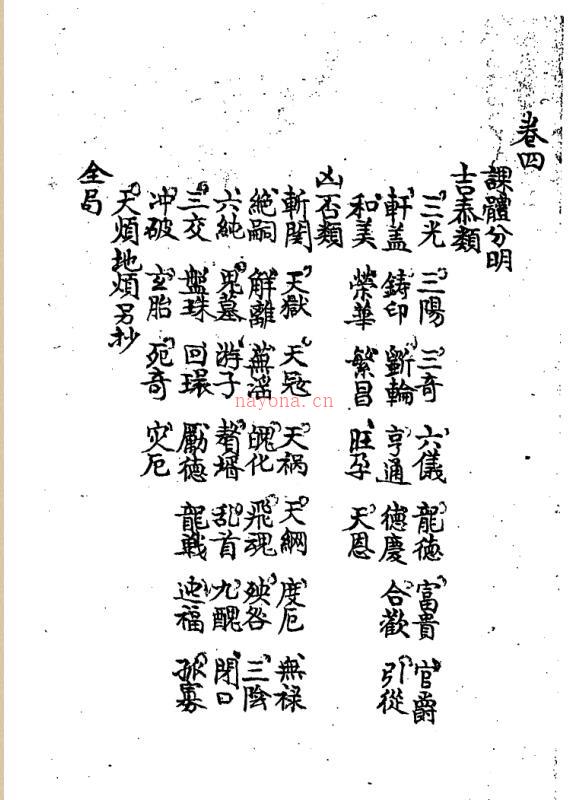 卷四
課體分明
吉泰類
三光 三陽 三奇 六儀 龍德 富貴 官爵
軒蓋 鋳印 斵輪 亨通 德慶 合歡 引從
和美 榮華 繁昌 旺孕 天恩
凶否類
斬関 天獄 天寇 天禍 天網 度厄 無禄
絕嗣 解離 蕪滛 魄化 飛魂 殃咎 三陰
六純 鬼墓 游子 贅壻 乱首 九醜 閉口
三交 盤珠 回環 勵德 龍戰 迍福 孤寡
冲破 玄胎 死奇 灾厄
天煩地煩另抄
全局
nayona.cn